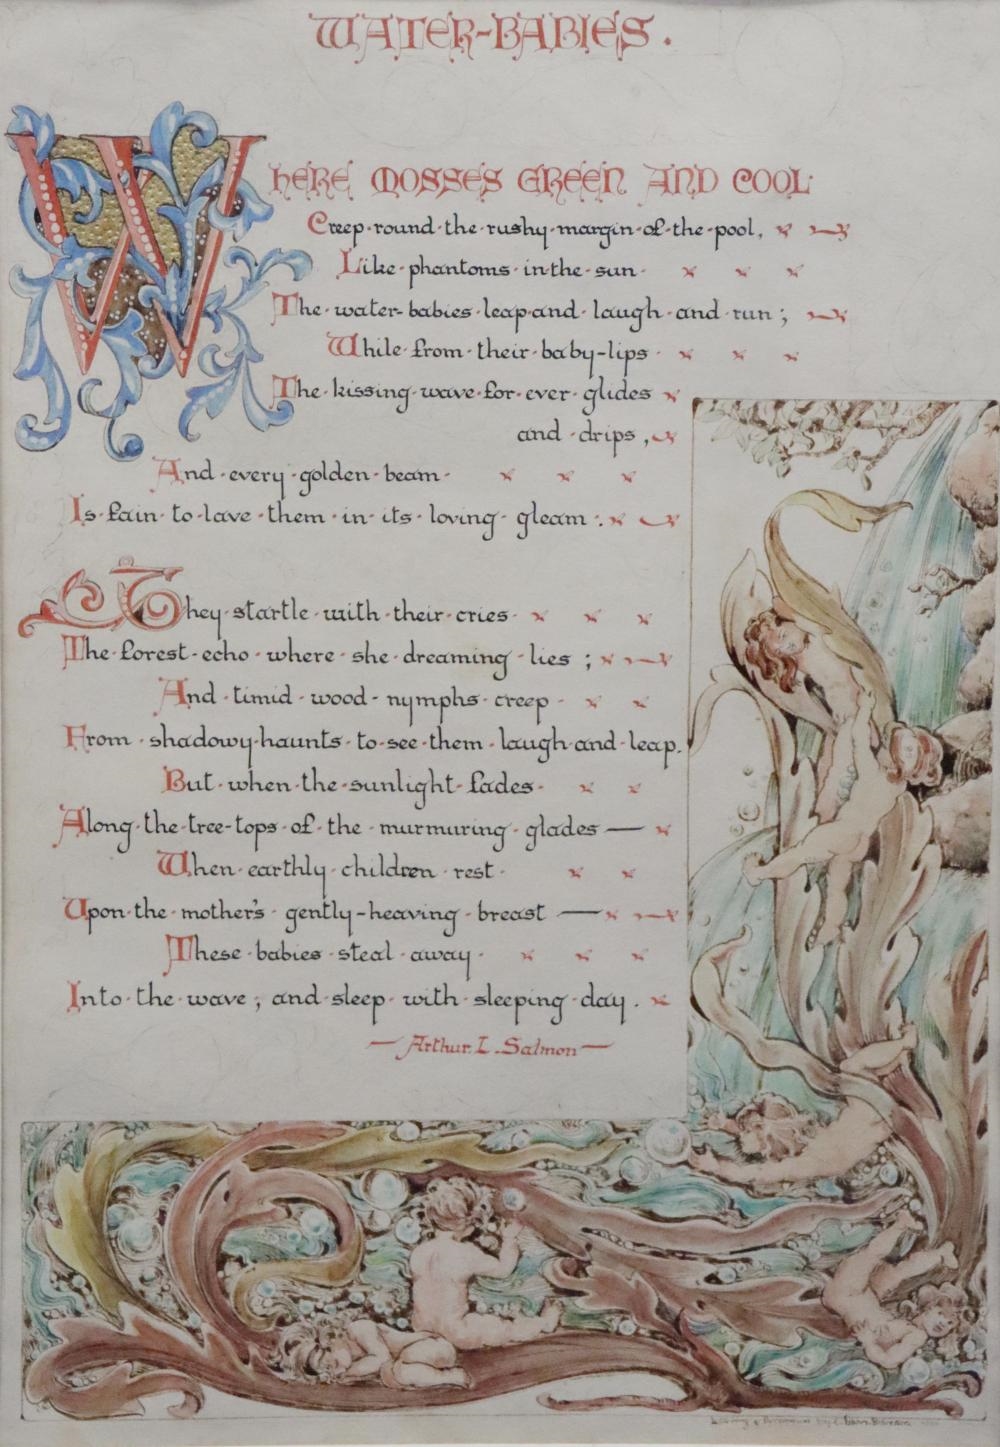 WATER-BABIES.
WHERE MOSSES GREEN AND COOL
Creep round the rushy margin of the pool,
Like phantoms in the sun
The water-babies leap and laugh and run;
While from their baby-lips
The kissing wave for ever glides
and drips,
And every golden beam
Is fain to lave them in its loving gleam.
They startle with their cries
The forest-echo where she dreaming lies;
And timid wood-nymphs creep
From shadowy haunts to see them laugh and leap.
But when the sunlight fades
Along the tree-tops of the murmuring glades—
When earthly children rest
Upon the mother's gently-heaving breast—
These babies steal away
Into the wave, and sleep with sleeping day.
—Arthur L. Salmon—
by